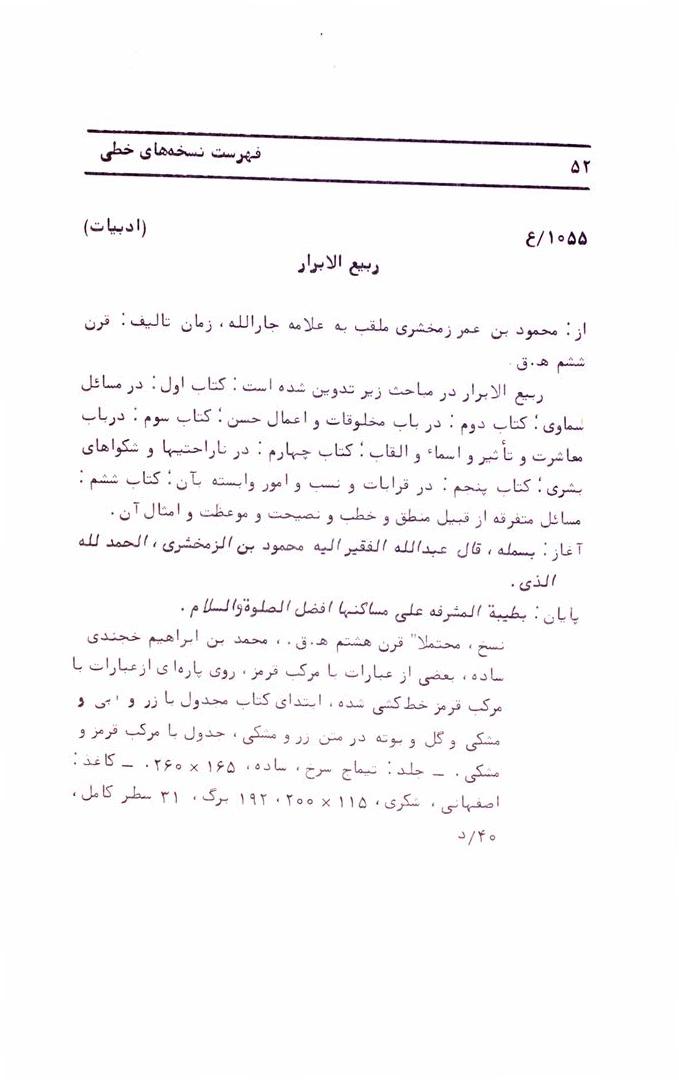 ۵۲ فهرست نسخه‌های خطی
۱۰۵۵/ع (ادبیات)
ربیع الابرار
از: محمود بن عمر زمخشری ملقب به علامه جارالله، زمان تالیف: قرن
ششم ه‍.ق.
ربیع الابرار در مباحث زیر تدوین شده است: کتاب اول: در مسائل
سماوی؛ کتاب دوم: در باب مخلوقات و اعمال حسن؛ کتاب سوم: درباب
معاشرت و تأثیر و اسماء و القاب؛ کتاب چهارم: در ناراحتیها و شکواهای
بشری؛ کتاب پنجم: در قرابات و نسب و امور وابسته بآن؛ کتاب ششم:
مسائل متفرقه از قبیل منطق و خطب و نصیحت و موعظت و امثال آن.
آغاز: بسمله، قال عبدالله الفقیر الیه محمود بن الزمخشری، الحمد لله
الذی.
پایان: بطیبة المشرفه علی مساکنها افضل الصلوة والسلام.
نسخ، محتملا" قرن هشتم ه‍.ق.، محمد بن ابراهیم خجندی
ساده، بعضی از عبارات با مرکب قرمز، روی پاره‌ای ازعبارات با
مرکب قرمز خط‌کشی شده، ابتدای کتاب مجدول با زر و و
مشکی و گل و بوته در متن زر و مشکی، جدول با مرکب قرمز و
مشکی. ــ جلد: تیماج سرخ، ساده، ۱۶۵ × ۲۶۰. ــ کاغذ:
اصفهانی، شکری، ۱۱۵ × ۲۰۰، ۱۹۲ برگ، ۳۱ سطر کامل،
۴۰/د